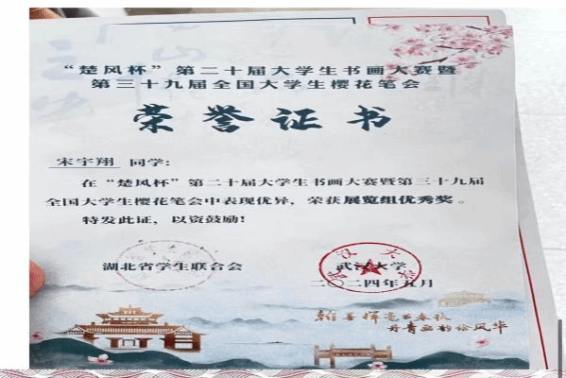 “楚风杯”第二十届大学生书画大赛暨
第三十九届全国大学生樱花笔会
荣誉证书
宋宇翔 同学:
在“楚风杯”第二十届大学生书画大赛暨第三十九届
全国大学生樱花笔会中表现优异，荣获展览组优秀奖。
特发此证，以资鼓励！
湖北省学生联合会
武汉大学
二〇二四年五月